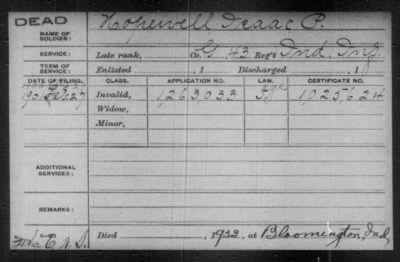 DEAD
NAME OF SOLDIER: Hopewell Isaac P.
SERVICE: Late rank, Co. G 43 Reg't Ind. Inf.
TERM OF SERVICE: Enlisted , 1 Discharged , 1
DATE OF FILING. CLASS. APPLICATION NO. LAW. CERTIFICATE NO.
1901 Feb. 27 Invalid, 1,263,033 1,025,624
Widow,
Minor,
ADDITIONAL SERVICES:
REMARKS:
Died , 1922, at Bloomington, Ind.